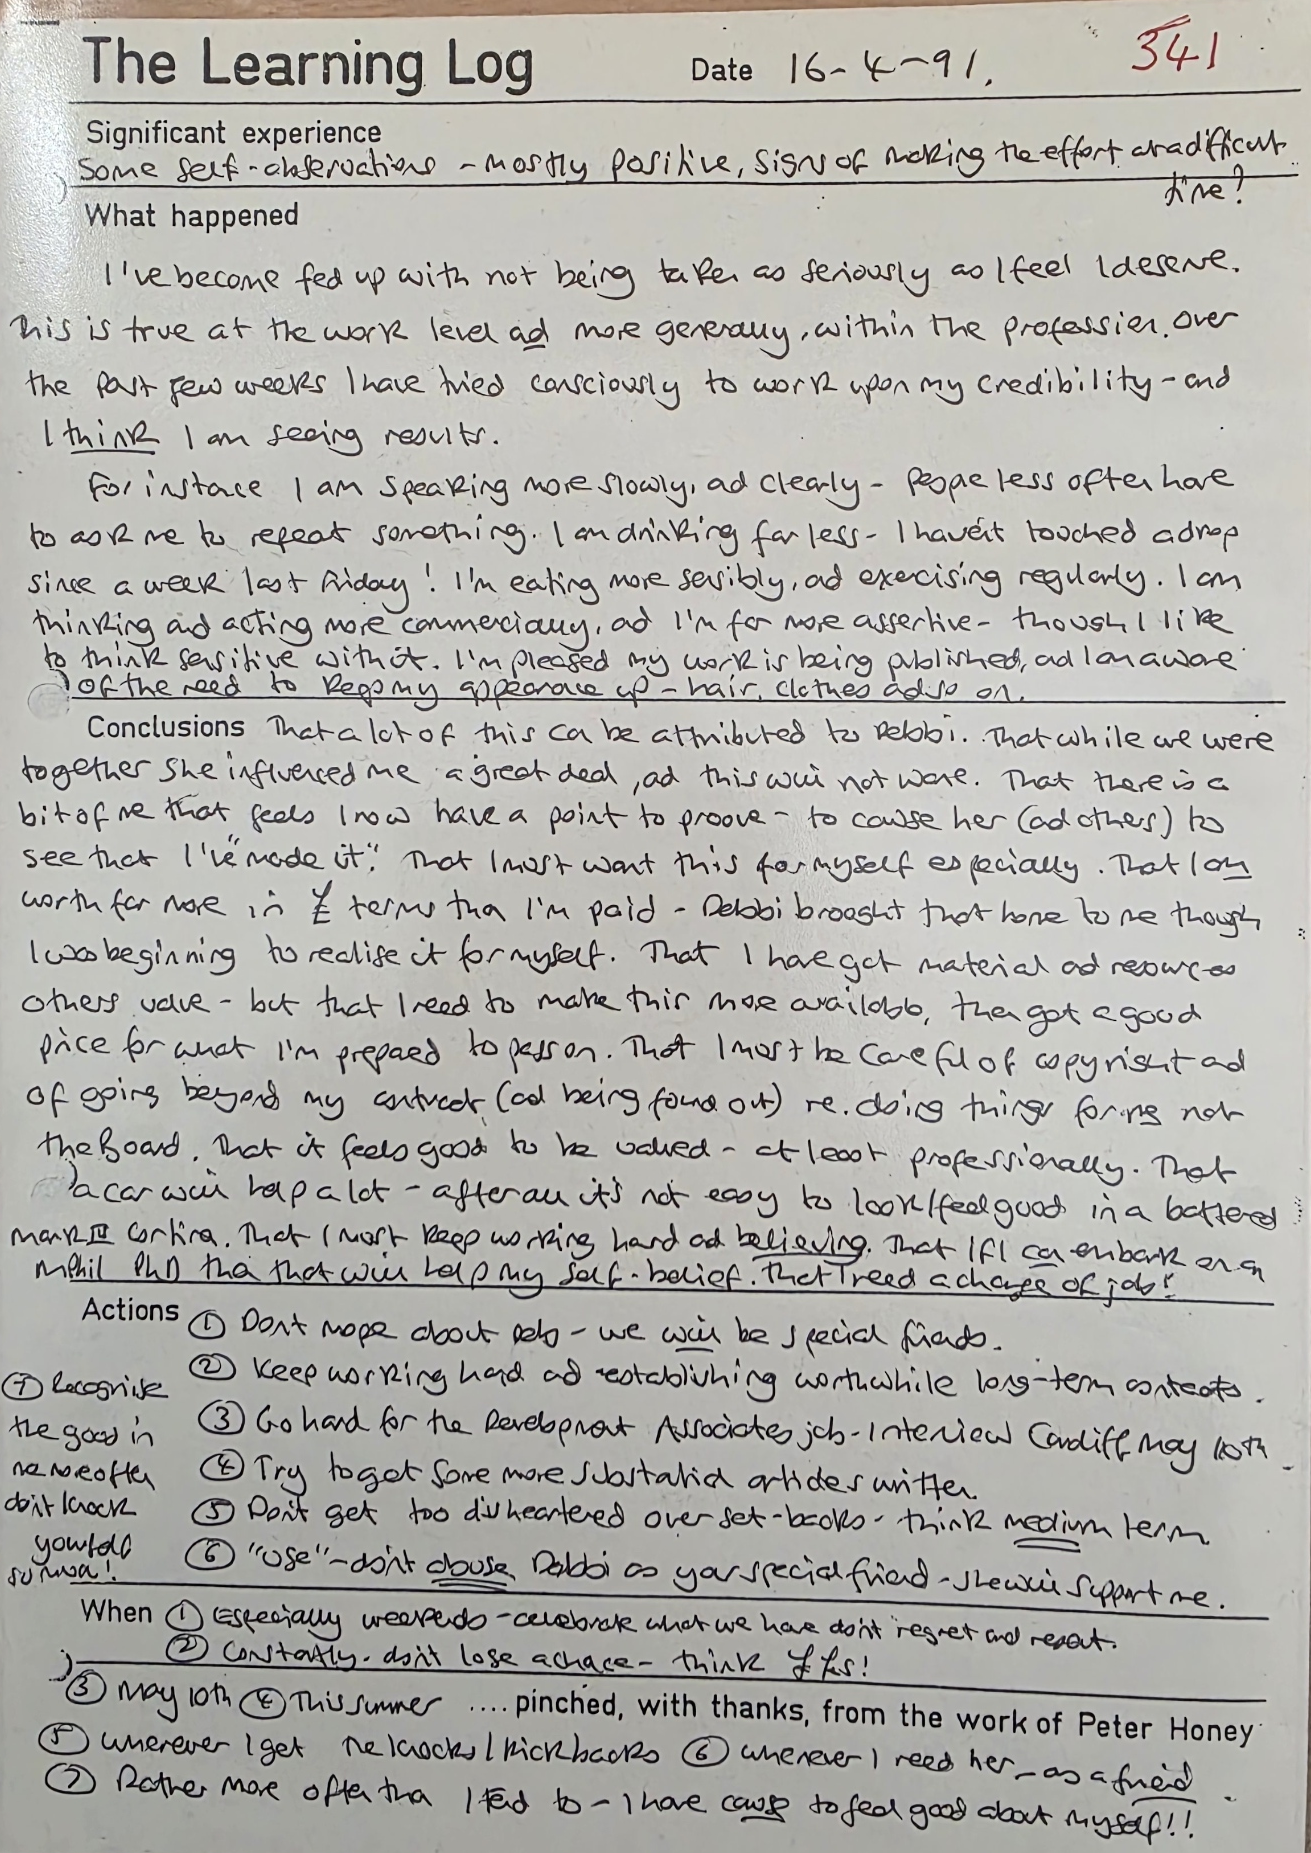 The Learning Log Date 16-4-91. 341
Significant experience
Some self-observations - mostly positive, signs of making the effort at a difficult
time?
What happened
I've become fed up with not being taken as seriously as I feel I deserve.
This is true at the work level and more generally, within the profession. Over
the past few weeks I have tried consciously to work upon my credibility - and
I think I am seeing results.
For instance I am speaking more slowly, and clearly - people less often have
to ask me to repeat something. I am drinking far less - I haven't touched a drop
since a week last Friday! I'm eating more sensibly, and exercising regularly. I am
thinking and acting more commercially, and I'm far more assertive - though I like
to think sensitive with it. I'm pleased my work is being published, and I am aware
of the need to keep my appearance up - hair, clothes and so on.
Conclusions That a lot of this can be attributed to Debbi. That while we were
together she influenced me a great deal, and this will not wane. That there is a
bit of me that feels I now have a point to proove - to cause her (and others) to
see that I've "made it". That I must want this for myself especially. That I am
worth far more in £ terms than I'm paid - Debbi brought that home to me though
I was beginning to realise it for myself. That I have got material and resources
others value - but that I need to make this more available, then get a good
price for what I'm prepared to pass on. That I must be careful of copyright and
of going beyond my contract (and being found out) re. doing things for me not
the Board. That it feels good to be valued - at least professionally. That
a car will help a lot - after all it's not easy to look/feel good in a battered
mark IV Cortina. That I must keep working hard and believing. That if I can embark on an
MPhil PhD then that will help my self-belief. That I need a change of job!
Actions ① Don't mope about Deb - we will be special friends.
② Keep working hard and establishing worthwhile long-term contacts.
③ Go hard for the Development Associates job - Interview Cardiff May 10th.
④ Try to get some more substantial articles written.
⑤ Don't get too disheartened over set-backs - think medium term
⑥ "Use" - don't abuse Debbi as your special friend - she will support me.
⑦ Recognise
the good in
me more often
don't knock
yourself
so much!
When ① Especially weekends - celebrate what we have don't regret and repeat.
② Constantly - don't lose a chance - think £ £s!
③ May 10th ④ This summer ....pinched, with thanks, from the work of Peter Honey
⑤ Wherever I get the knocks/kickbacks ⑥ whenever I need her - as a friend
⑦ Rather more often than I tend to - I have cause to feel good about myself!!